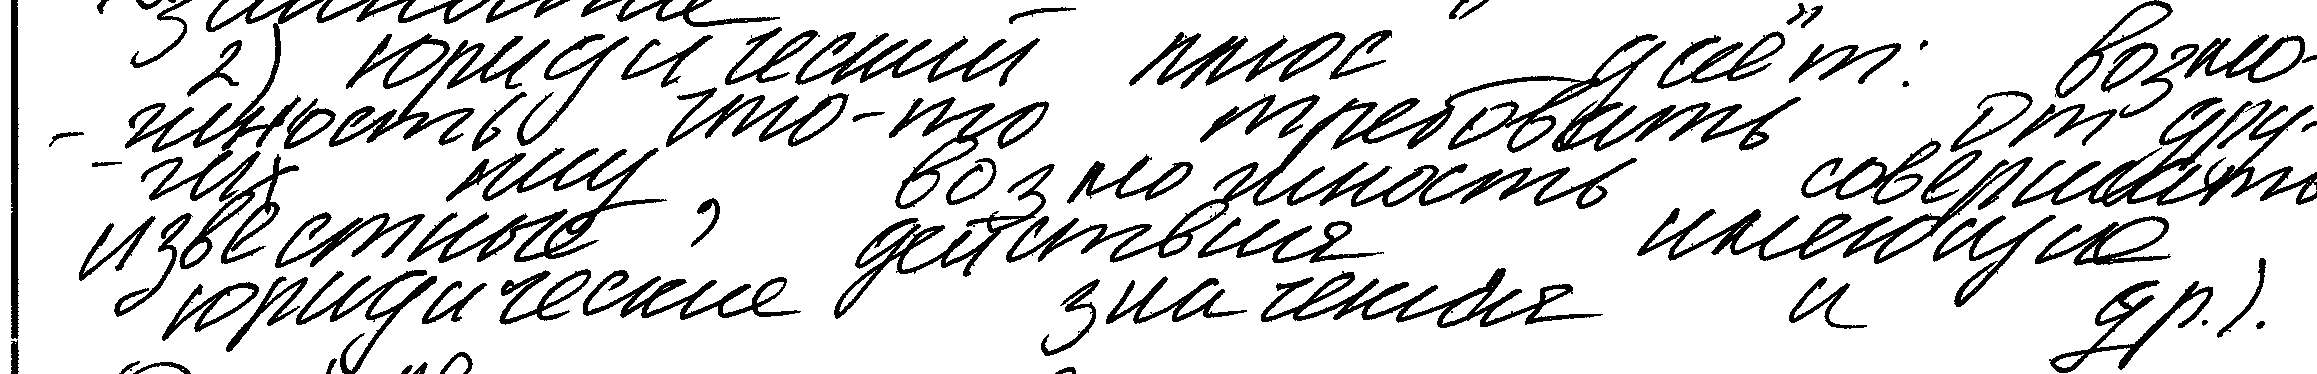 2) юридический плюс даёт: возмо-
-жность что-то требовать от дру-
-гих лиц, возможность совершать
известные, действия имеющие
юридические значения и др.).